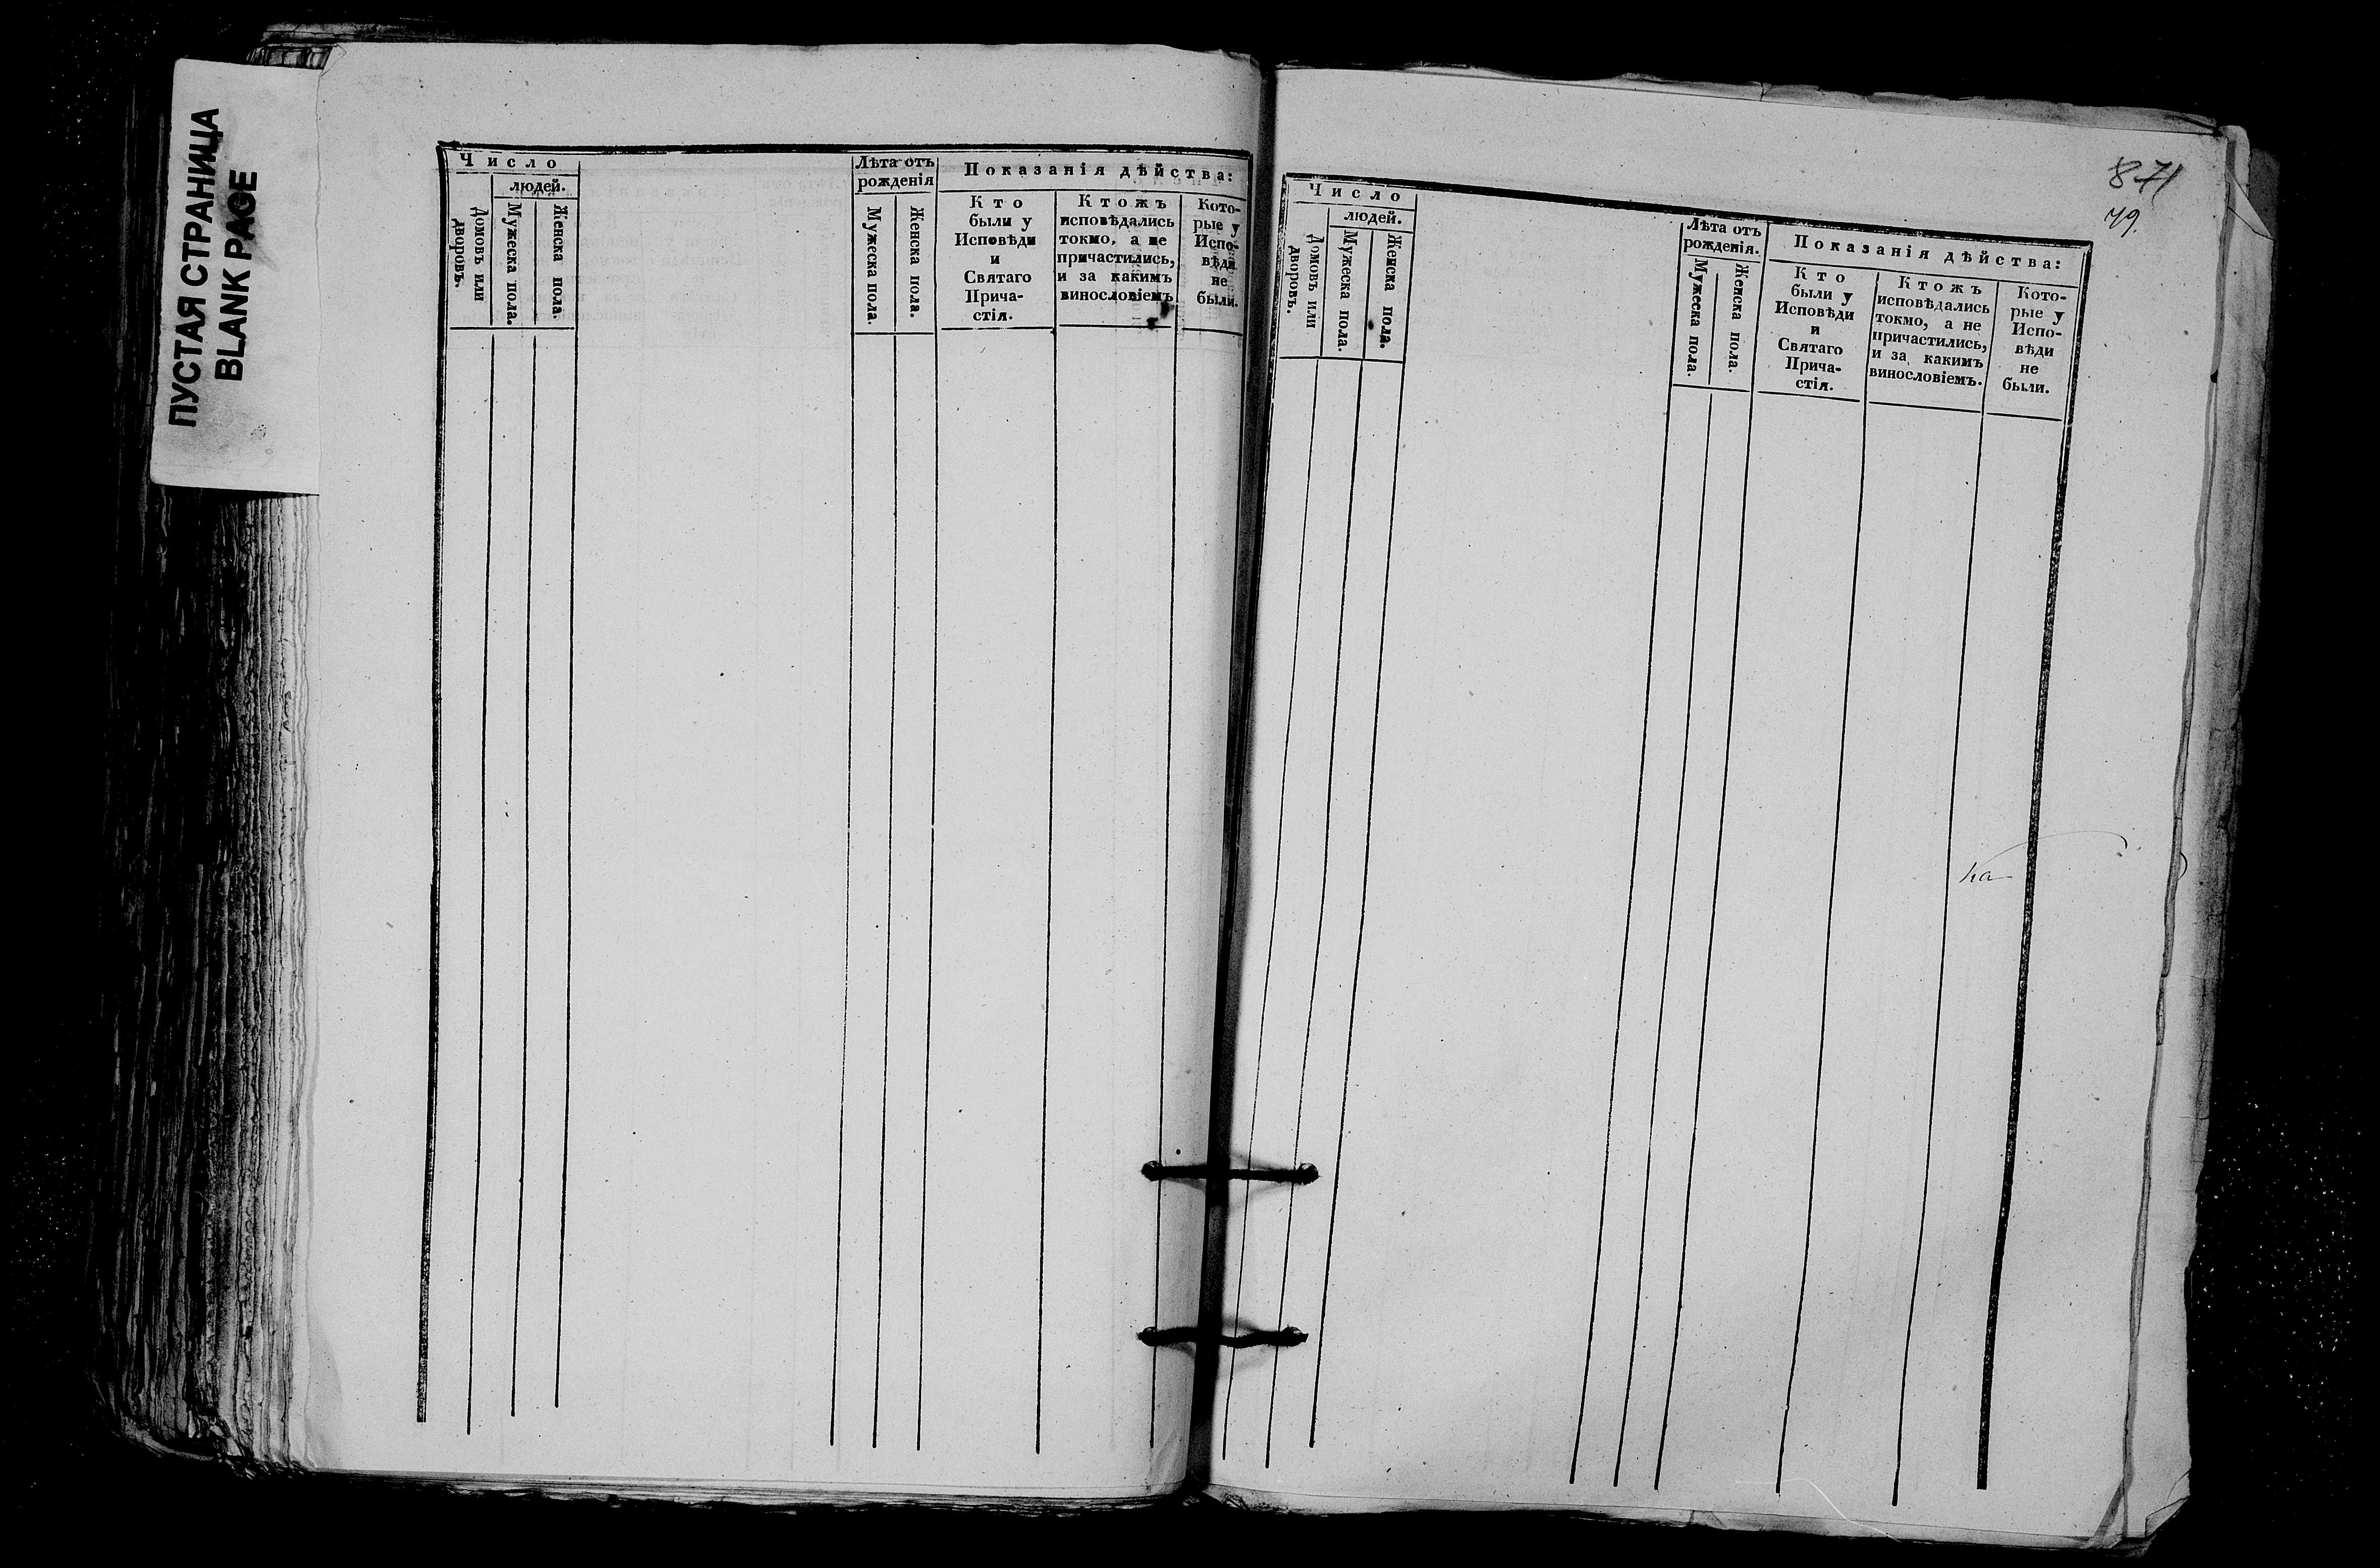 ПУСТАЯ СТРАНИЦА
BLANK PAGE
Число
людей.
Домовъ или
дворовъ.
Мужеска пола.
Женска пола.
Лѣта отъ
рожденія
Мужеска пола.
Женска пола.
Показанія дѣйства:
Кто
были у
Исповѣди
и
Святаго
Прича-
стія.
Ктожъ
исповѣдались
токмо, а не
причастились,
и за какимъ
винословіемъ
Кото-
рые у
Испо-
вѣди
не
были.
871
79.
Число
людей.
Домовъ или
дворовъ.
Мужеска пола.
Женска пола.
Лѣта отъ
рожденія.
Мужеска пола.
Женска пола.
Показанія дѣйства:
Кто
были у
Исповѣди
и
Святаго
Прича-
стія.
Ктожъ
исповѣдались
токмо, а не
причастились,
и за какимъ
винословіемъ.
Кото-
рые у
Испо-
вѣди
не
были.
ка